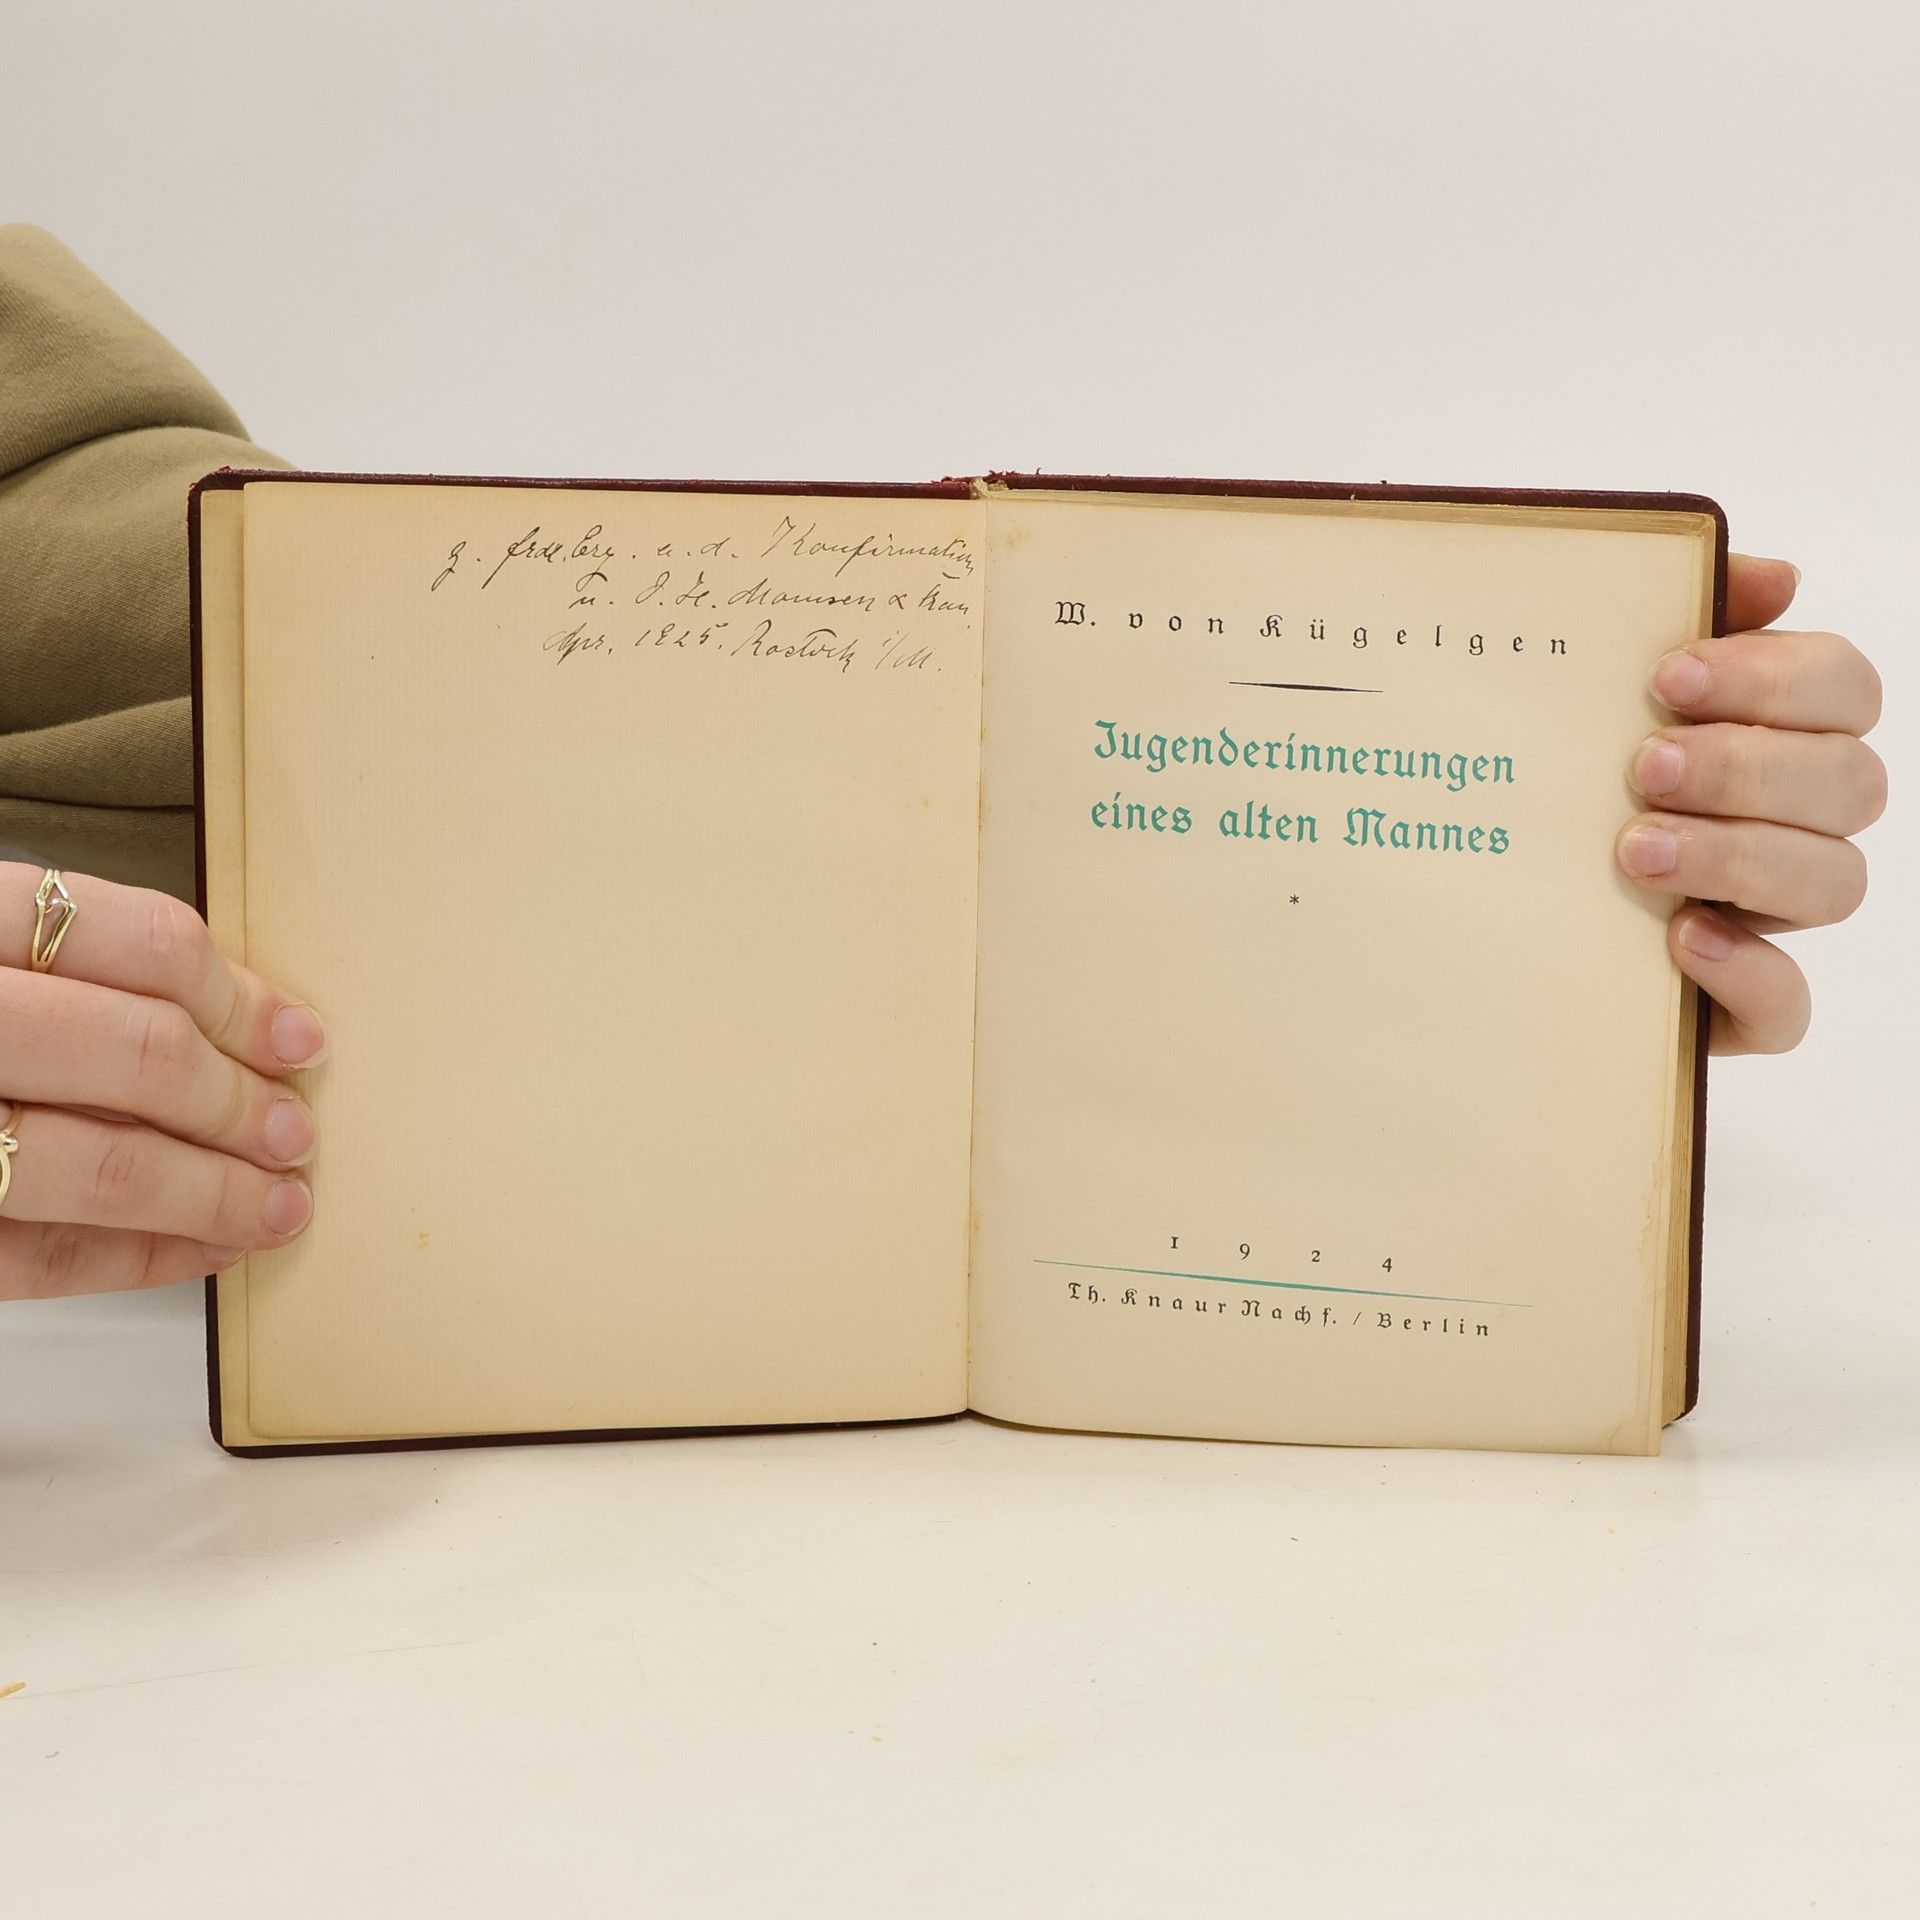 z. frdl. Erg. a. d. Konfirmation
v. J. H. Momsen & Frau
Apr. 1925. Rostock i/M.
W. von Kügelgen
Jugenderinnerungen
eines alten Mannes
*
1924
Th. Knaur Nachf. / Berlin